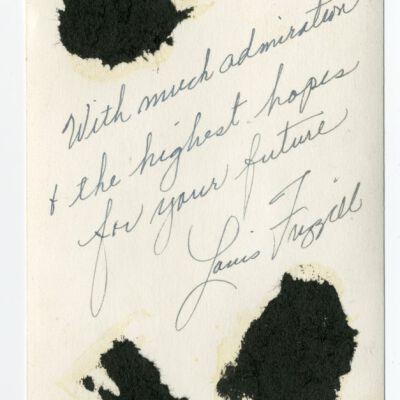 With much admiration
& the highest hopes
for your future
Louis Frizzell